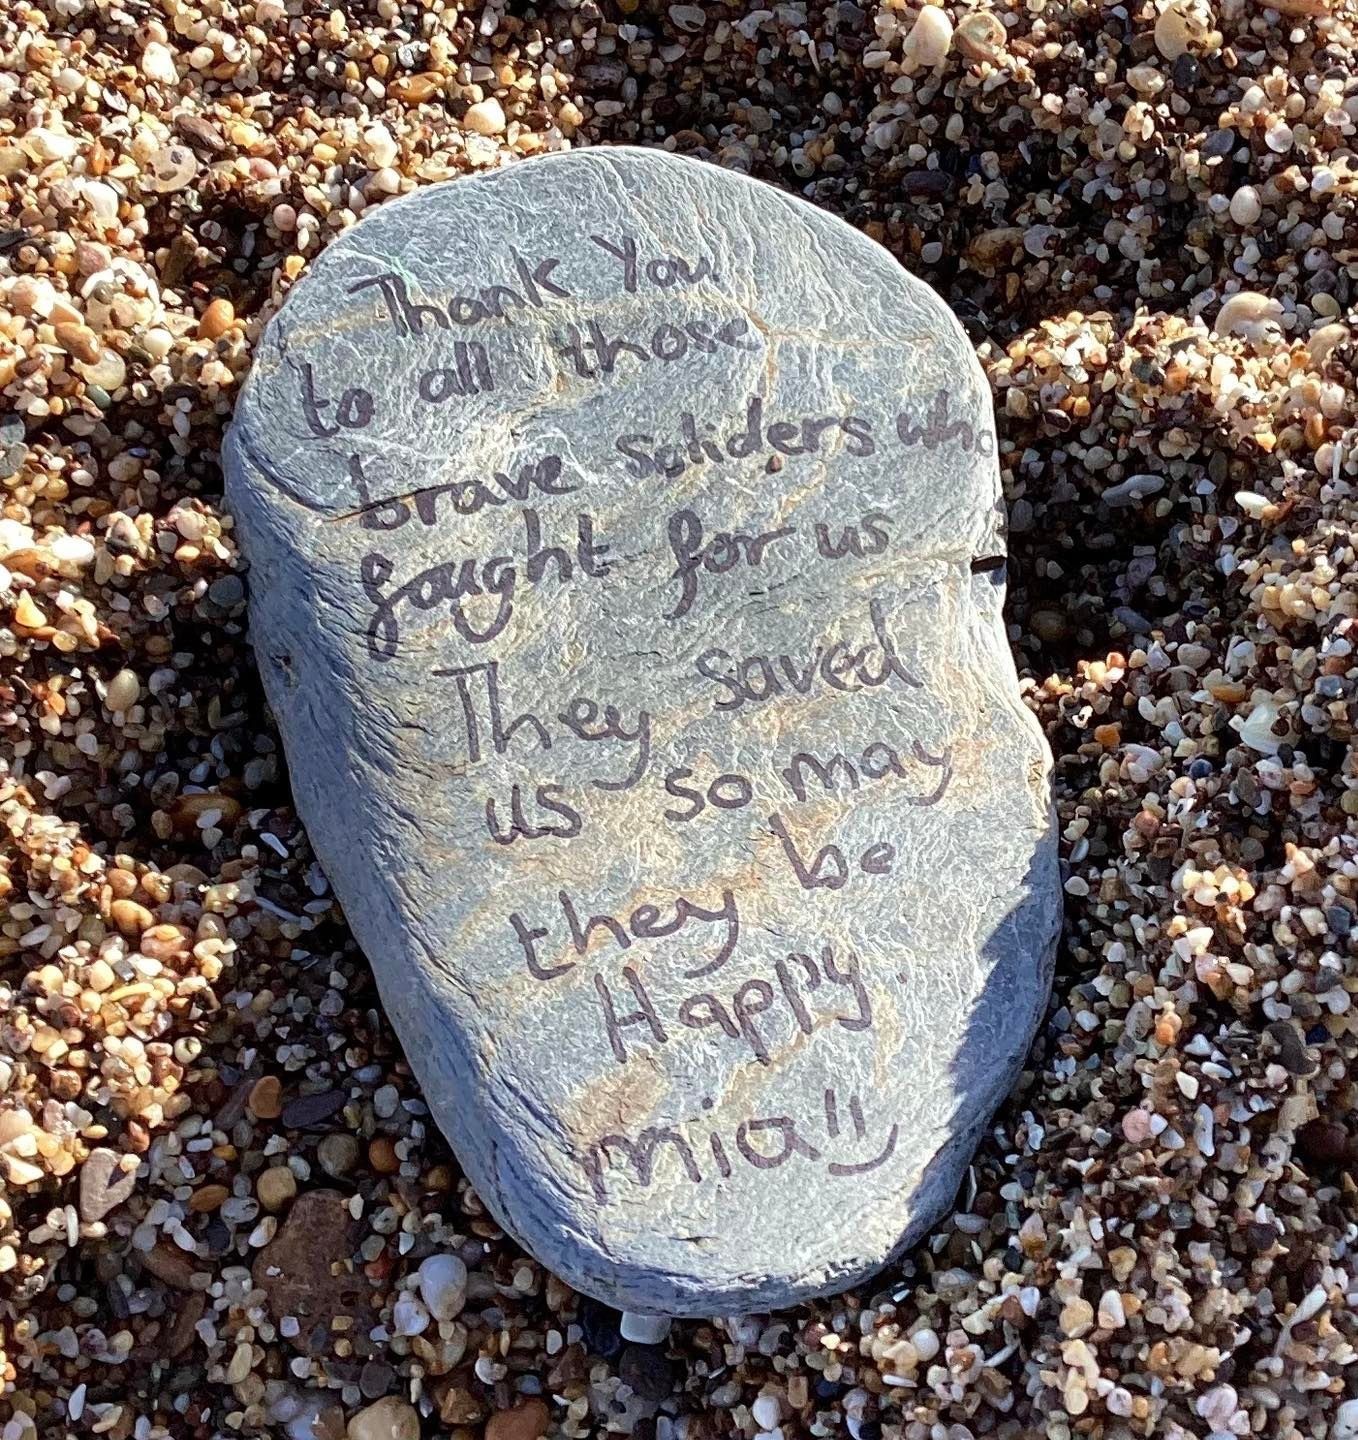 Thank You
to all those
brave soliders who
fought for us
They saved
us so may
they be
Happy.
mia